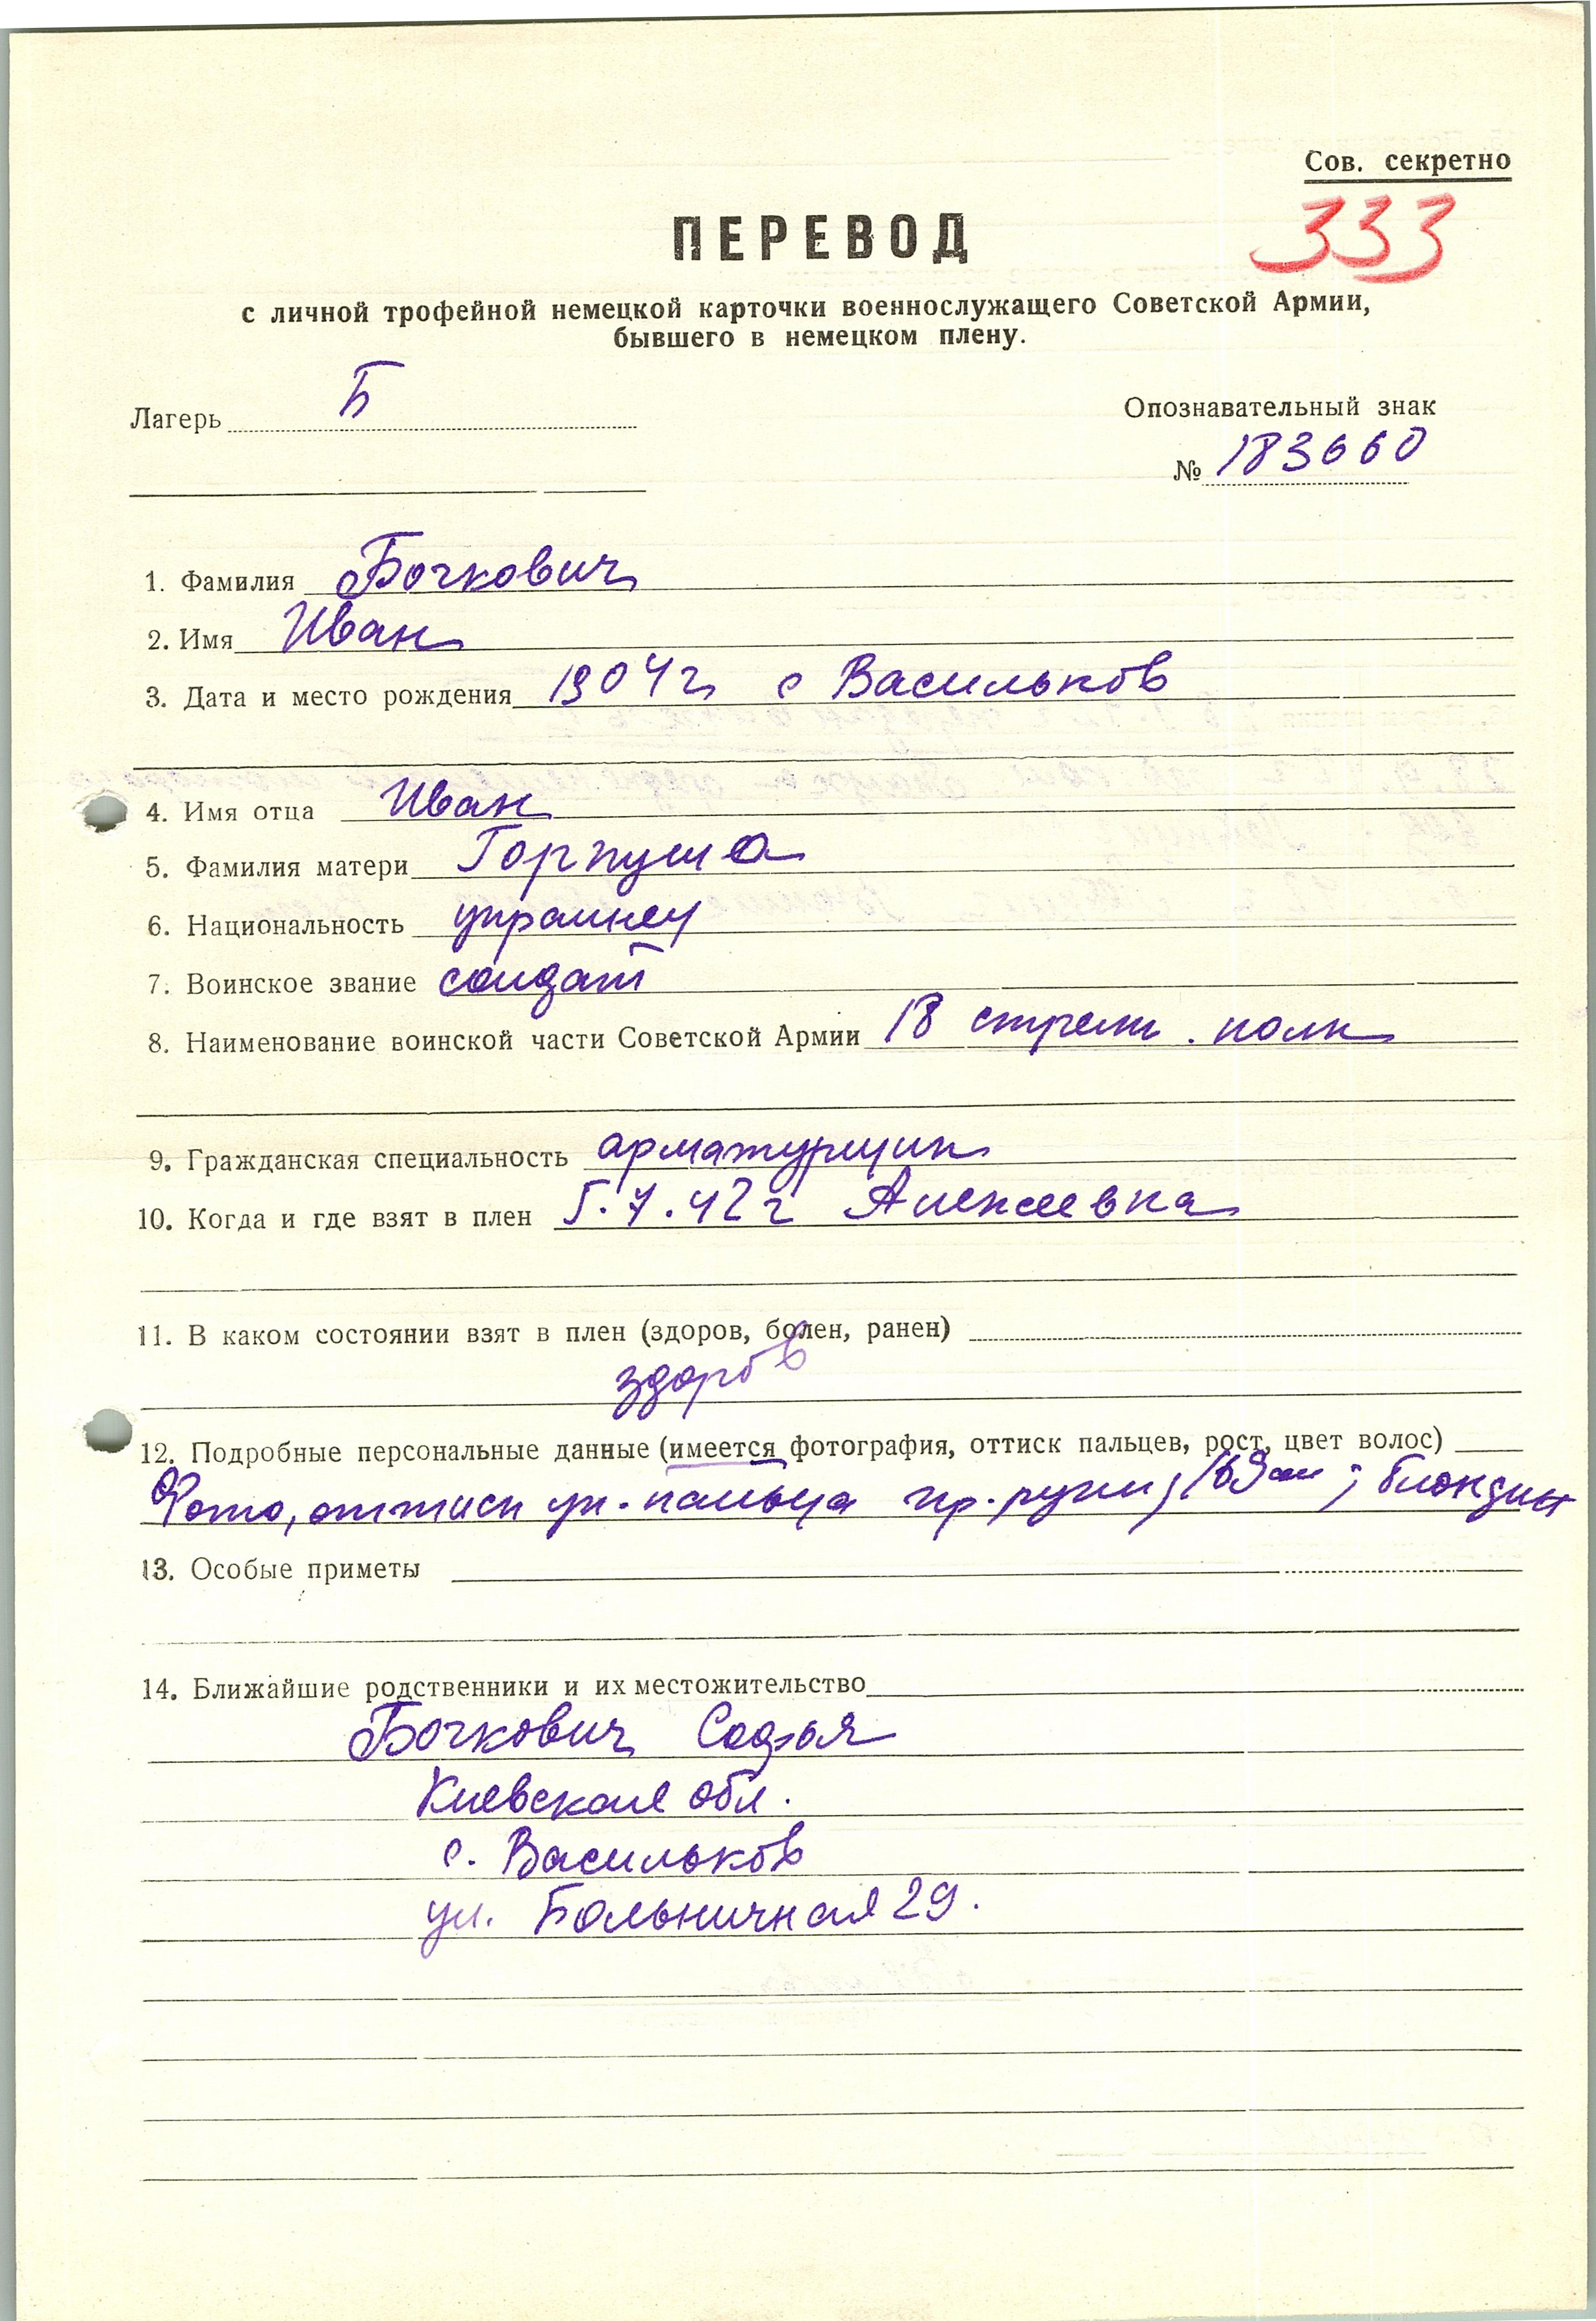 Сов. секретно
333
ПЕРЕВОД
с личной трофейной немецкой карточки военнослужащего Советской Армии,
бывшего в немецком плену.
Лагерь Б
Опознавательный знак
№ 183660
1. Фамилия Бочкович
2. Имя Иван
3. Дата и место рождения 1904 г с Васильков
4. Имя отца Иван
5. Фамилия матери
6. Национальность украинец
7. Воинское звание солдат
8. Наименование воинской части Советской Армии 18 стрелк. полк
9. Гражданская специальность арматурщик
10. Когда и где взят в плен 5.7.42 г Алексеевка
11. В каком состоянии взят в плен (здоров, болен, ранен)
здоров
12. Подробные персональные данные (имеется фотография, оттиск пальцев, рост, цвет волос)
Фото, оттиск ук. пальца пр. руки; 169 см; блондин
13. Особые приметы
14. Ближайшие родственники и их местожительство
Бочкович Софья
Киевская обл.
с. Васильков
ул. Больничная 29.